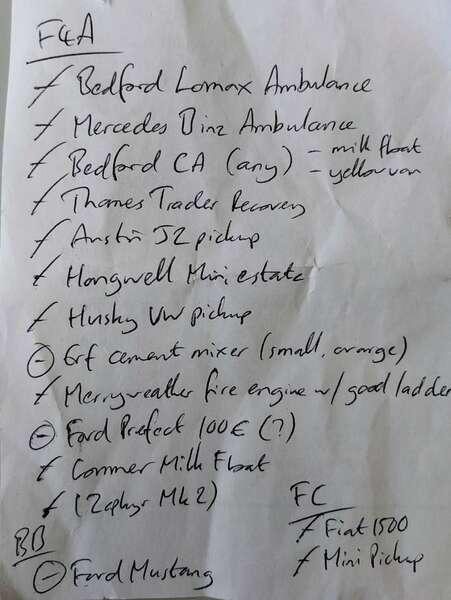 F&A
Bedford Lomax Ambulance
Mercedes Binz Ambulance
Bedford CA (any) - milk float
- yellow van
Thames Trader Recovery
Austin J2 pickup
Hongwell Mini estate
Husky VW pickup
Erf cement mixer (small, orange)
Merryweather fire engine w/ good ladder
Ford Prefect 100E (?)
Commer Milk Float
(Zephyr Mk2)
FC
Fiat 1500
Mini Pickup
BB
Ford Mustang